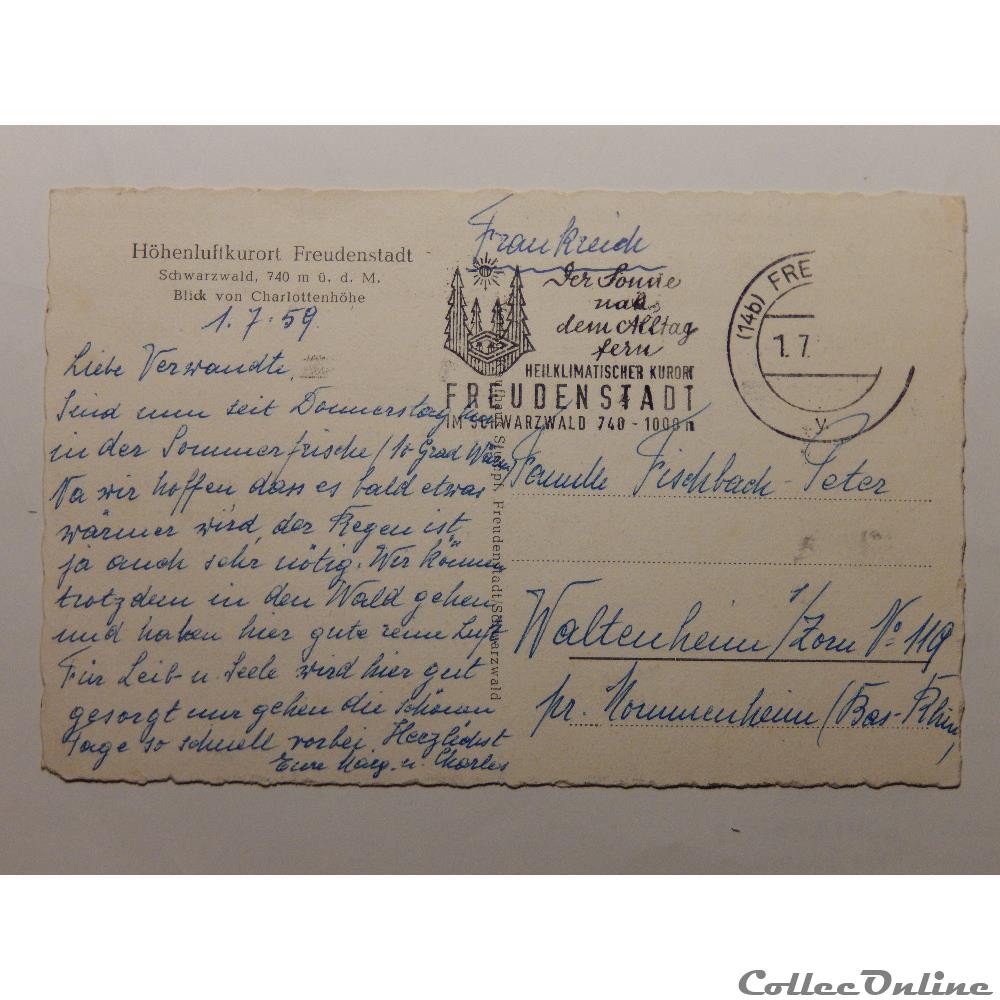 Höhenluftkurort Freudenstadt
Schwarzwald, 740 m ü. d. M.
Blick von Charlottenhöhe
1.7.59.
Liebe Verwandte,
Sind nun seit Donnerstag hier
in der Sommerfrische /10 Grad Wärme
Na wir hoffen dass es bald etwas
wärmer wird, der Regen ist
ja auch sehr nötig. Wir können
trotzdem in den Wald gehen
und haben hier gute reine Luft
Für Leib- u. Seele wird hier gut
gesorgt nur gehen die schönen
Tage so schnell vorbei. Herzlichst
Eure Marg. u. Charles
Frankreich
Der Sonne
nah
dem Alltag
fern
HEILKLIMATISCHER KURORT
FREUDENSTADT
IM SCHWARZWALD 740 - 1000 m
(14b) FRE
1.7.
y
Freudenstadt/Schwarzwald
Familie Fischbach-Peter
Waltenheim s/Zorn No 119
pr. Mommenheim /Bas-Rhin,
CollecOnline